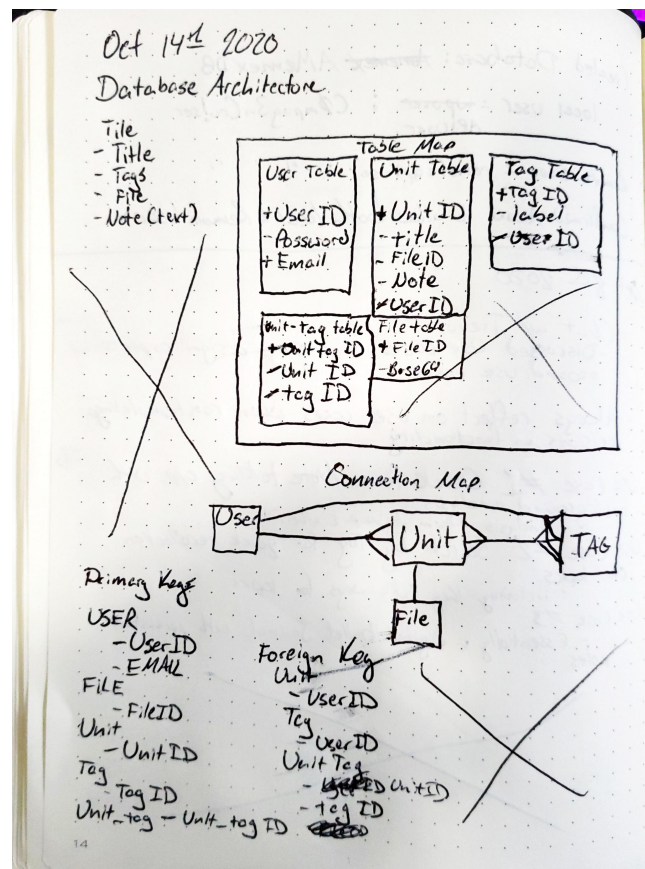 Oct 14th 2020
Database Architecture
Tile
- Title
- Tags
- File
- Note (text)
Table Map
User Table
+ User ID
- Password
+ Email
Unit Table
+ Unit ID
- title
- File ID
- Note
- User ID
Tag Table
+ Tag ID
- label
- User ID
Unit-tag table
+ Unit tag ID
- Unit ID
- tag ID
File table
+ File ID
- Base64
Connection Map
User
Unit
TAG
File
Primary Keys
USER
- UserID
- EMAIL
FILE
- FileID
Unit
- Unit ID
Tag
- Tag ID
Unit_tag - Unit_tag ID
Foreign Key
Unit
- UserID
Tag
- UserID
Unit Tag
- UnitID
- tag ID
14